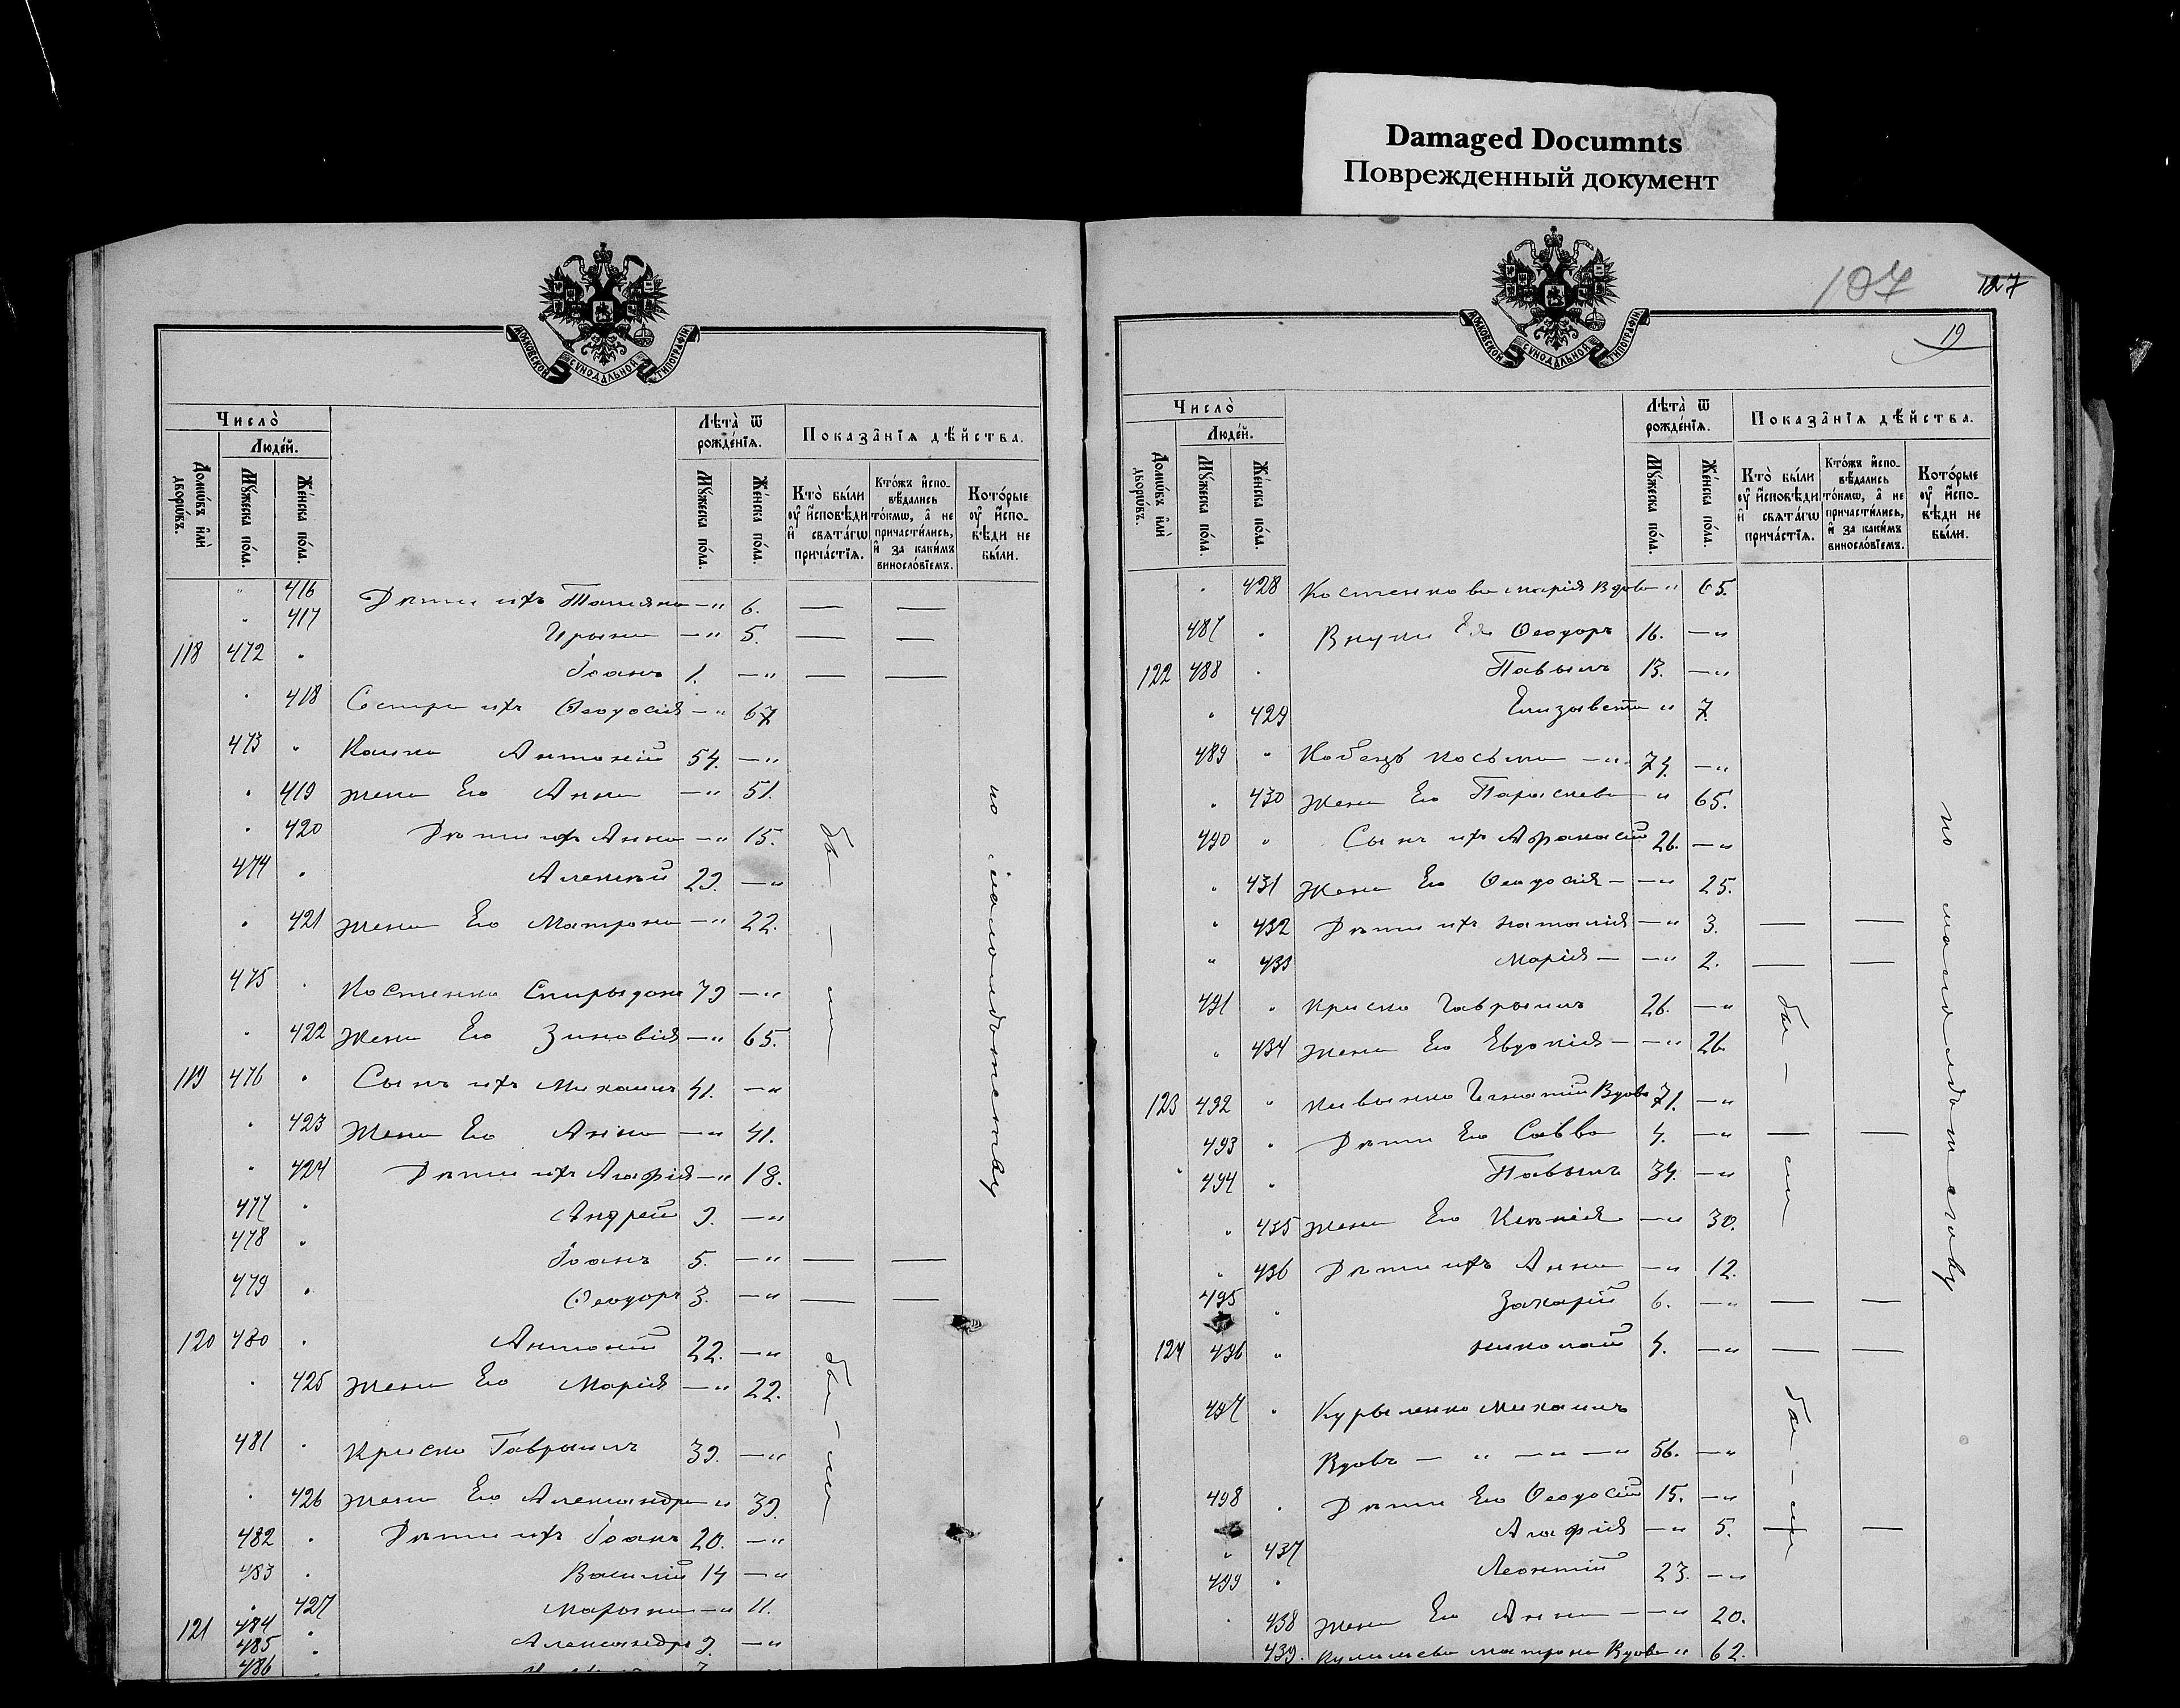 Damaged Documnts
Поврежденный документ
МОСКОВСКОЙ СѴНОДАЛЬНОЙ ТИПОГРАФІИ
Число̀
Людей.
Домѡ́въ и҆лѝ дворѡ́въ.
Мꙋ́жеска по́ла.
Же́нска по́ла.
Лѣта̀ ѿ рожде́нїѧ.
Мꙋ́жеска по́ла.
Же́нска по́ла.
Показа̑нїѧ дѣ́йства.
Кто̀ бы́ли ᲂу҆ и҆сповѣ́ди и҆ свѧта́гѡ прича́стїѧ.
Кто́жъ и҆сповѣ́дались то́кмѡ, а҆ не причасти́лись, и҆ за каки́мъ виносло́вїемъ.
Кото́рые ᲂу҆ и҆сповѣ́ди не бы́ли.
416 Дѣти ихъ Татіяна —" 6. — —
417 Ирына —" 5. — —
118 472 Іоанъ 1. —" — —
418 Сестра ихъ Ѳеодосія —" 67
473 Кашка Антоній 54. —"
419 жена Его Анна —" 51.
420 Дѣти ихъ Анна —" 15.
474 Алексѣй 29. —"
421 жена Его Матрона —" 22.
475 Костенко Спирыдонъ 79 —"
422 Жена Его Зиновія —" 65.
119 476 Сынъ ихъ Михаилъ 41. —"
423 Жена Его Анна —" 41.
424 Дѣти ихъ Агафія —" 18.
477 Андрей 9. —"
478 Іоанъ 5. —" — —
479 Ѳеодоръ 3. —" — —
120 480 Антоній 22. —"
425 жена Его Марія —" 22.
481 Криско Гаврыилъ 39. —"
426 жена Его Александра " 39.
482 Дѣти ихъ Іоанъ 20. —"
483 Василій 14 —"
427 Марына —" 11.
121 484 Александръ 9. —"
485
486
бы — ли
бы — ли
по малолѣтству
107
127
19
МОСКОВСКОЙ СѴНОДАЛЬНОЙ ТИПОГРАФІИ
Число̀
Людей.
Домѡ́въ и҆лѝ дворѡ́въ.
Мꙋ́жеска по́ла.
Же́нска по́ла.
Лѣта̀ ѿ рожде́нїѧ.
Мꙋ́жеска по́ла.
Же́нска по́ла.
Показа̑нїѧ дѣ́йства.
Кто̀ бы́ли ᲂу҆ и҆сповѣ́ди и҆ свѧта́гѡ прича́стїѧ.
Кто́жъ и҆сповѣ́дались то́кмѡ, а҆ не причасти́лись, и҆ за каки́мъ виносло́вїемъ.
Кото́рые ᲂу҆ и҆сповѣ́ди не бы́ли.
428 Костенкова Марія Вдова " 65.
487 Внуки Ея Ѳеодоръ 16. —"
122 488 Павылъ 13. —"
429 Елизавета " 7.
489 Кобецъ Косьма —" 74. —"
430 Жена Его Параскева " 65.
490 Сынъ ихъ Афанасій 26. —"
431 Жена Его Ѳеодосія — —" 25.
432 Дѣти ихъ Наталія —" 3. — —
433 Марія — —" 2. — —
491 Криско Гаврыилъ 26. —"
434 Жена Его Евдокія — —" 26
123 492 Игнатій Вдовъ 71. —"
493 Дѣти Его Савва 4. —" — —
494 Павылъ 34. —"
435 жена Его —" 30.
436 Дѣти ихъ Анна —" 12.
495 Захарій 6. —" — —
124 496 Николай 4. —" — —
497 Курыленко Михаилъ
Вдовъ — " —" —" 56. —"
498 Дѣти Его Ѳеодосій 15. —"
437 Агафія —" 5. — —
499 Леонтій 23. —"
438 Жена Его Анна — —" 20.
439. Матрона Вдова " 62.
бы — ли
бы — ли
по малолѣтству